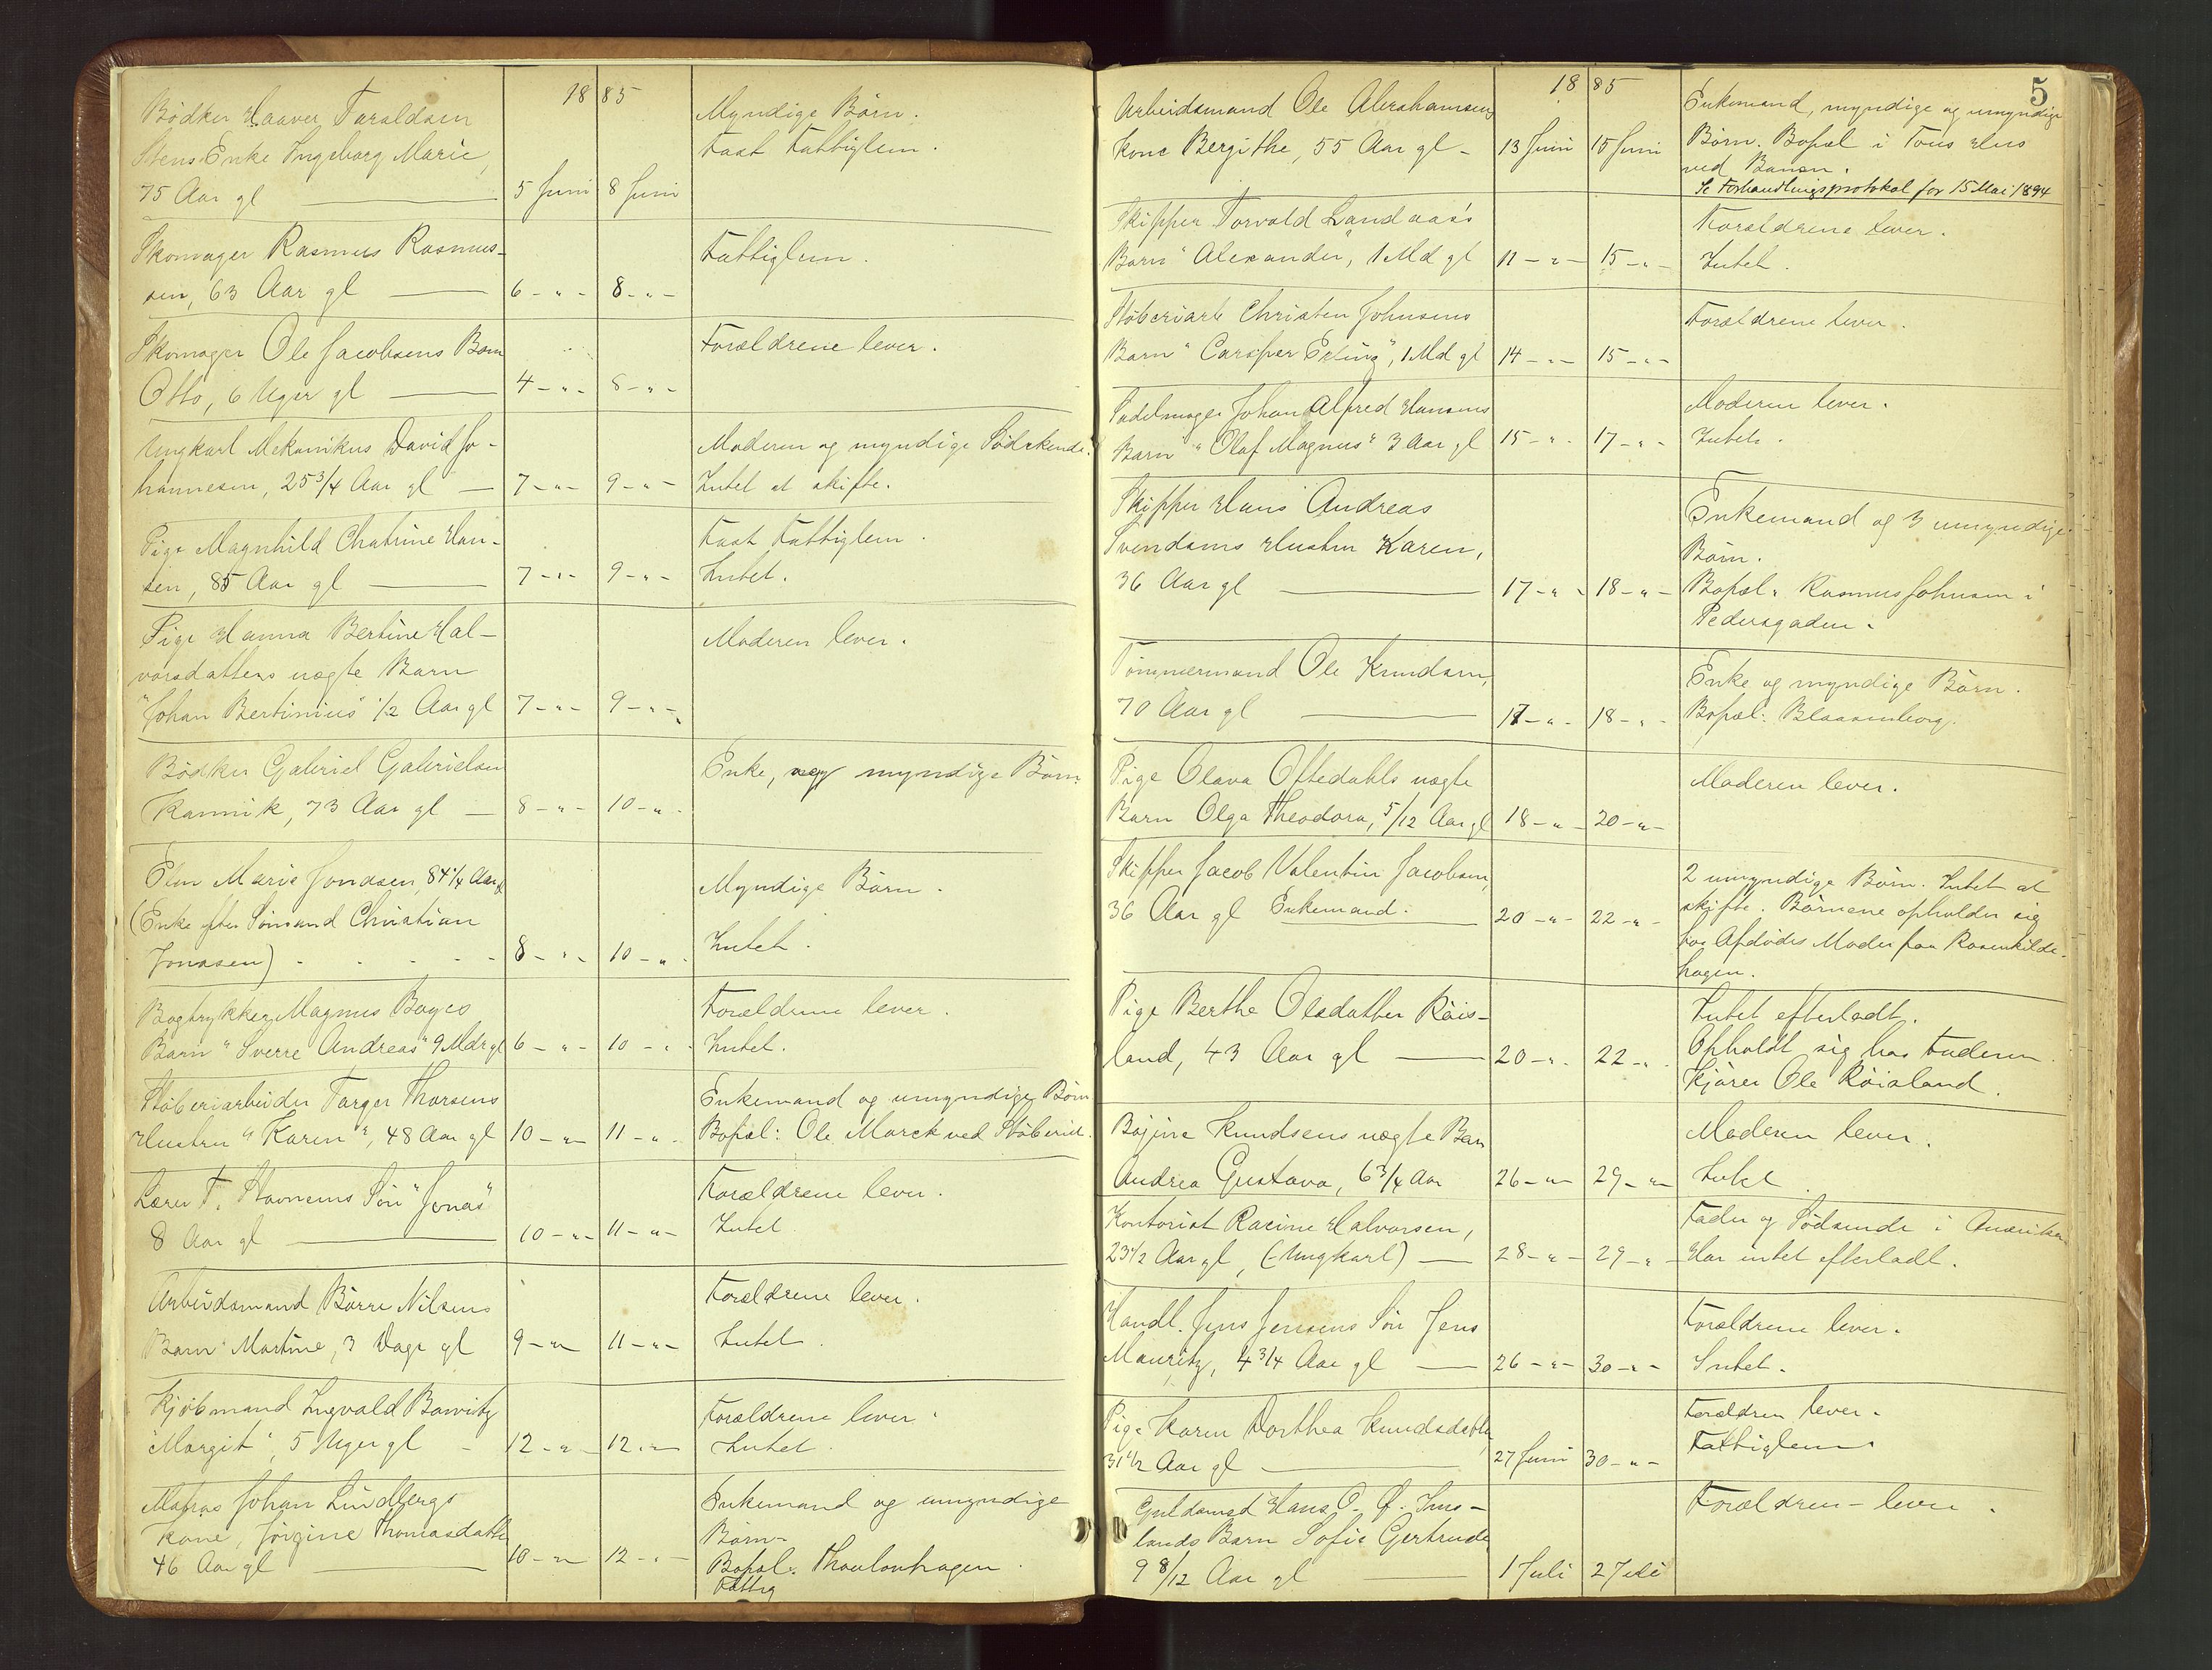 18 85
Bødker Haaver Taraldsen
Stens Enke Ingeborg Marie,
75 Aar gl
5 Juni 8 Juni
Myndige Børn.
Fast Fattiglem.
Skomager Rasmus Rasmus-
sen, 63 Aar gl
6 - " - 8 - " -
Fattiglem.
Skomager Ole Jacobsens Barn
Otto, 6 Uger gl
4 - " - 8 - " -
Forældrene lever.
Ungkarl Mekanikus David Jo-
hannesen, 25 3/4 Aar gl
7 - " - 9 - " -
Moderen og myndige Sødskende.
Intet at skifte.
Pige Magnhild Chatrine Han-
sen, 85 Aar gl
7 - " - 9 - " -
Fast Fattiglem.
Intet.
Pige Hanna Bertine Hal-
vorsdatters uægte Barn
"Johan Bertinius" 1/2 Aar gl
7 - " - 9 - " -
Moderen lever.
Bødker Gabriel Gabrielsen
Kannik, 73 Aar gl
8 - " - 10 - " -
Enke, myndige Børn
Elen Marie Jonasen, 84 1/4 Aar gl
(Enke efter Sømand Christian
Jonasen)
8 - " - 10 - " -
Myndige Børn.
Intet.
Bogtrykker Magnus Bøges
Barn "Sverre Andreas" 9 Mdr gl
6 - " - 10 - " -
Forældrene lever.
Intet.
Støberiarbeider Targer Thorsens
Hustru "Karen", 48 Aar gl
10 - " - 11 - " -
Enkemand og umyndige Børn
Bopæl: Ole Marck ved Støberiet.
Lærer T. Stavnems Søn "Jonas"
8 Aar gl
10 - " - 11 - " -
Forældrene lever.
Intet
Arbeidsmand Børre Nilsens
Barn Martine, 3 Dage gl
9 - " - 11 - " -
Forældrene lever.
Intet.
Kjøbmand Ingvald
"Margit", 5 Uger gl
12 - " - 12 - " -
Forældrene lever.
Intet.
Matros Johan Lindbergs
Kone, Jørgine Thomasdatter
46 Aar gl
10 - " - 12 - " -
Enkemand og umyndige
Børn
Bopæl: Thoulowhagen.
Fattig
5
18 85
Arbeidsmand Ole Abrahamsens
Kone Bergithe, 55 Aar gl -
13 Juni 15 Juni
Enkemand, myndige og umyndige
Børn. Bopæl i Tous Hus
ved Banen.
Se Forhandlingsprotokol for 15 Mai 1894
Skipper Torvald Landaas's
Barn "Alexander", 1 Md gl
11 - " - 15 - " -
Forældrene lever.
Intet.
Støberiarb Christen Johnsens
Barn "Casper Erling", 1 Md gl
14 - " - 15 - " -
Forældrene lever.
Sadelmager Johan Alfred Hansens
Barn "Olaf Magnus" 3 Aar gl
15 - " - 17 - " -
Moderen lever.
Intet.
Skipper Hans Andreas
Svendsens Hustru Karen,
36 Aar gl
17 - " - 18 - " -
Enkemand og 3 umyndige
Børn.
Bopæl: Rasmus Johnsen i
Pedersgaden.
Tømmermand Ole Knudsen,
70 Aar gl
17 - " - 18 - " -
Enke og myndige Børn.
Bopæl: Blaasenborg.
Pige Olava Oftedahls uægte
Barn Olga Theodora, 5/12 Aar gl
18 - " - 20 - " -
Moderen lever.
Skipper Jacob Valentin Jacobsen,
36 Aar gl Enkemand.
20 - " - 22 - " -
2 umyndige Børn. Intet at
skifte. Børnene opholder sig
hos Afdødes Moder paa Rosenkilde-
hagen.
Pige Berthe Olsdatter Røis-
land, 43 Aar gl
20 - " - 22 - " -
Intet efterladt.
Opholdt sig hos Faderen
Kjører Ole Røisland.
Bøjine Knudsens uægte Barn
Andrea Gustava, 6 3/4 Aar
26 - " - 29 - " -
Moderen lever.
Intet
Kontorist Racine Halvorsen,
23 1/2 Aar gl, (Ungkarl)
28 - " - 29 - " -
Fader og Sødsende i Amerika
Har intet efterladt.
Handl. Jens Jensens Søn Jens
Mauritz, 4 3/4 Aar gl
26 - " - 30 - " -
Forældrene lever.
Intet.
Pige Karen Dorthea Knudsdatter,
31 1/2 Aar gl
27 Juni 30 - " -
Forældren lever.
Fattiglem
Guldsmed Hans O. Ims-
lands Barn Sofie Gertrude
9 8/12 Aar gl
1 Juli 2 Juli
Forældren lever.